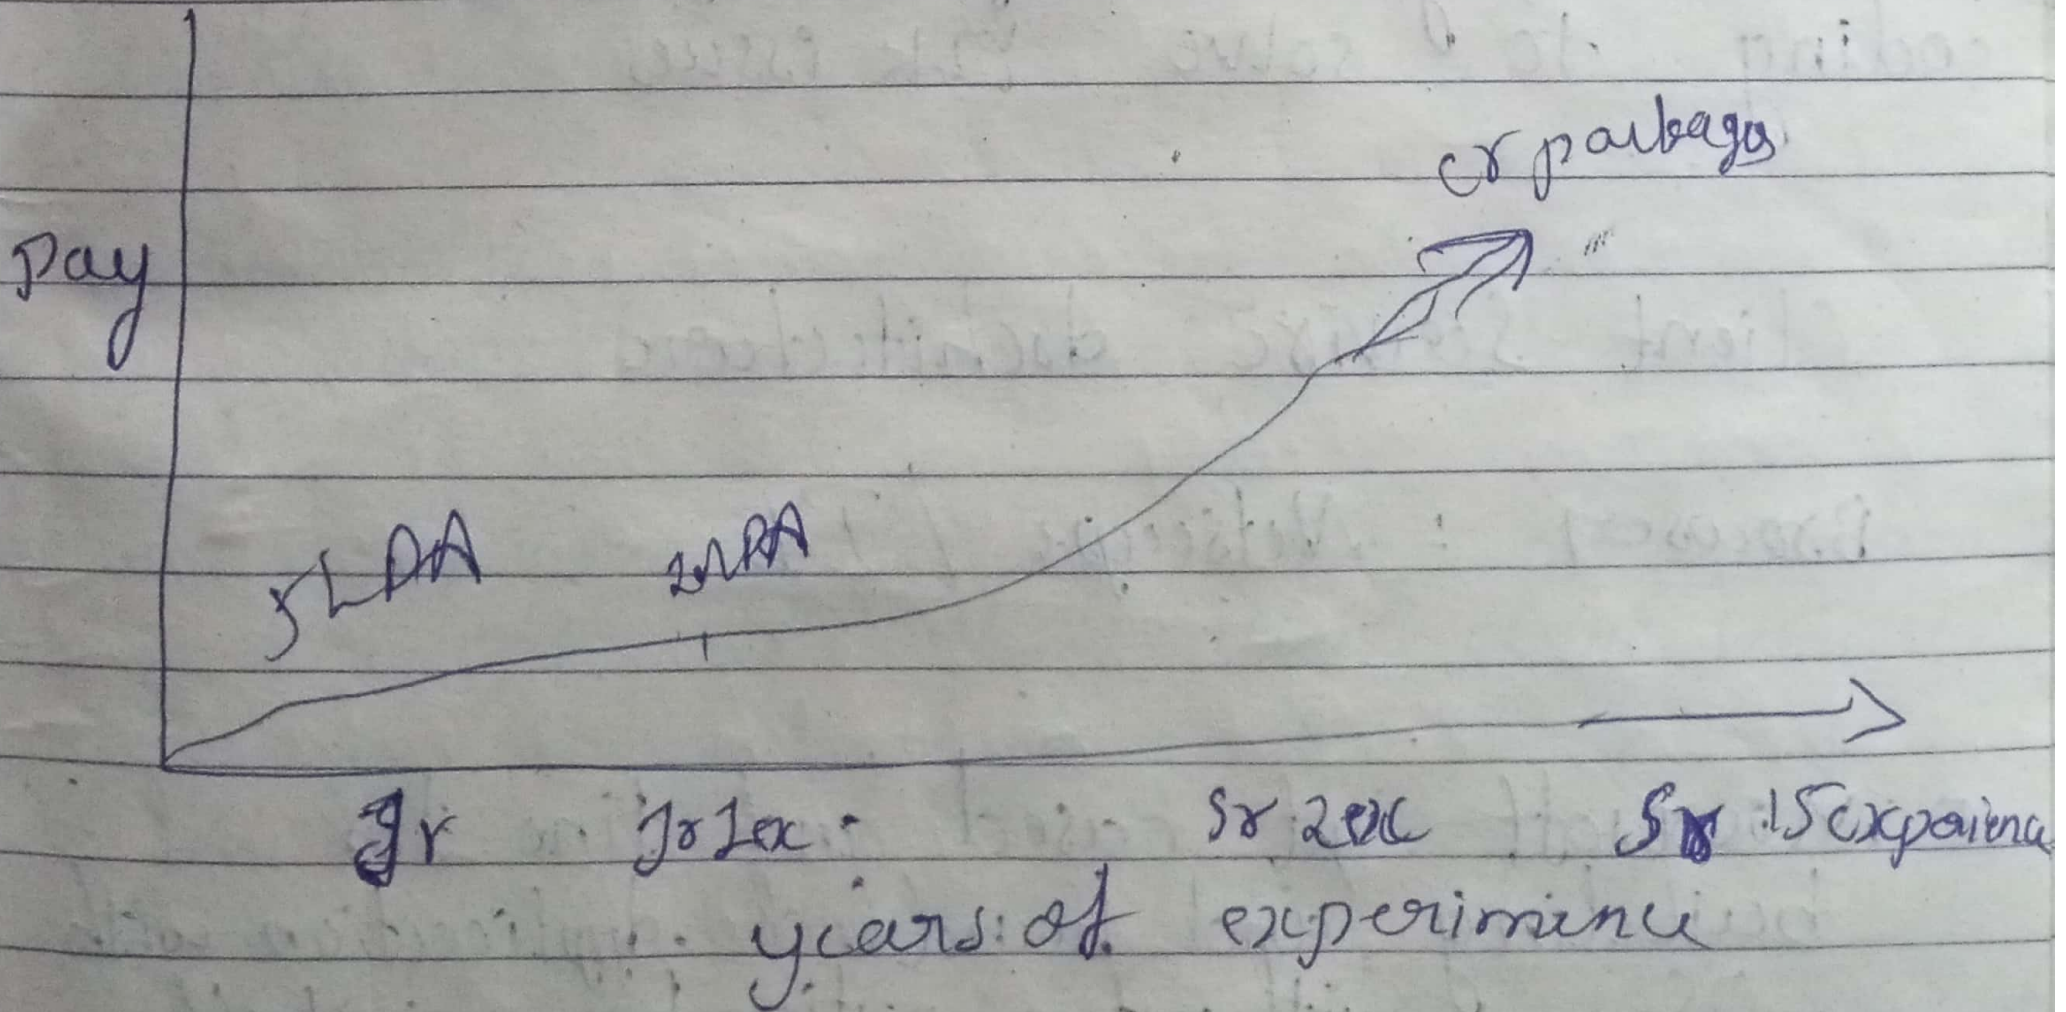 cr package
pay
5 LPA
Jr Jr 1ex Sr 2ex Sr 15 experience
years of experimence